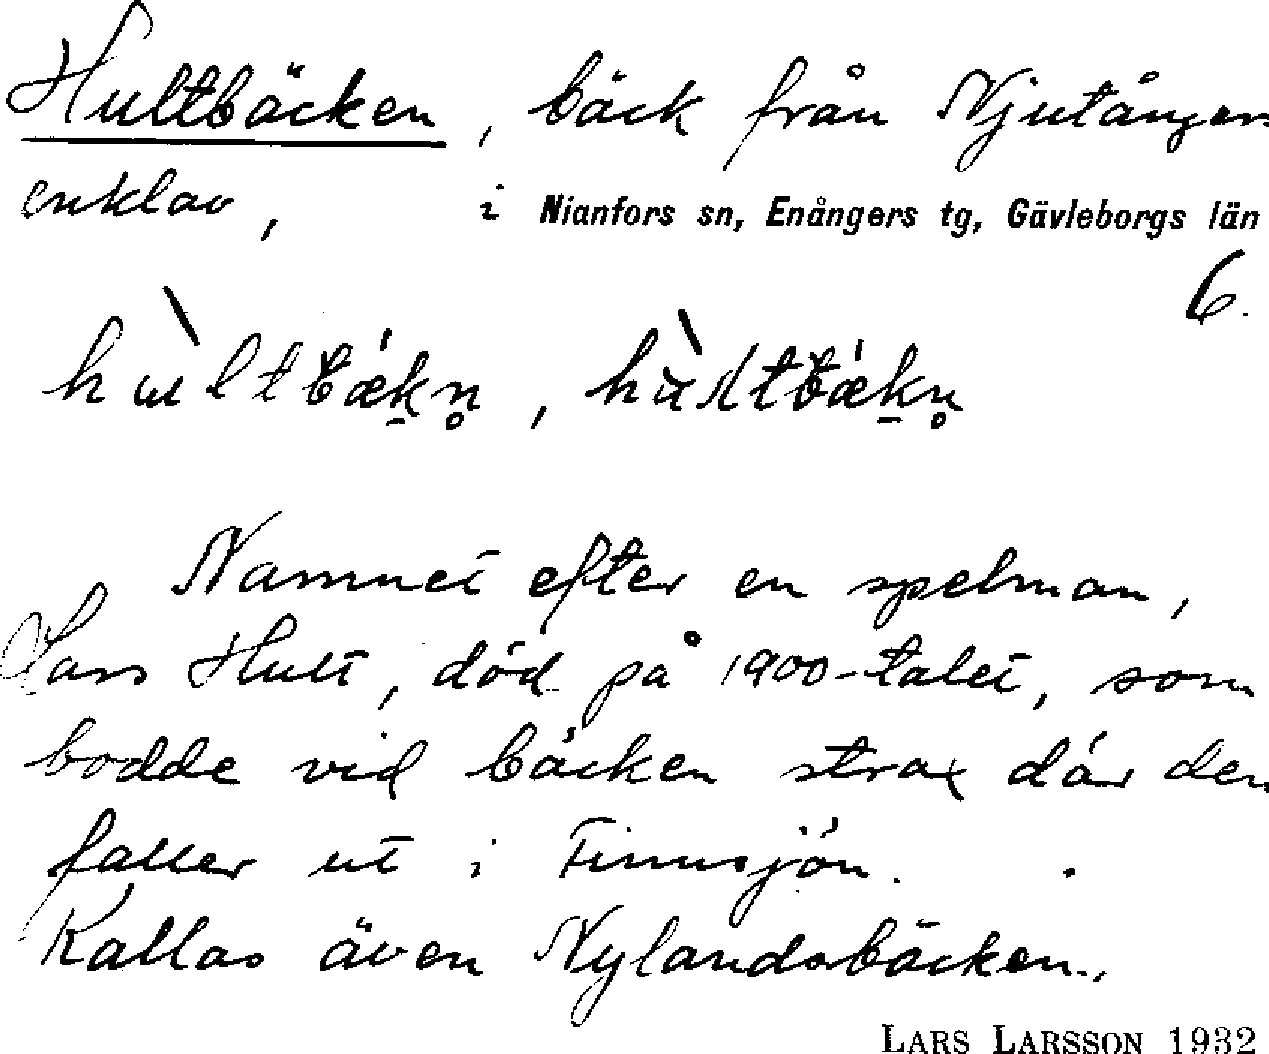 Hultbäcken, bäck från Njutångers
enklav, i Nianfors sn, Enångers tg, Gävleborgs län
6.
Namnet efter en spelman,
Lars Hult, död på 1900-talet, som
bodde vid bäcken strax där den
faller ut i Finnsjön.
Kallas även Nylandsbäcken.
LARS LARSSON 1932